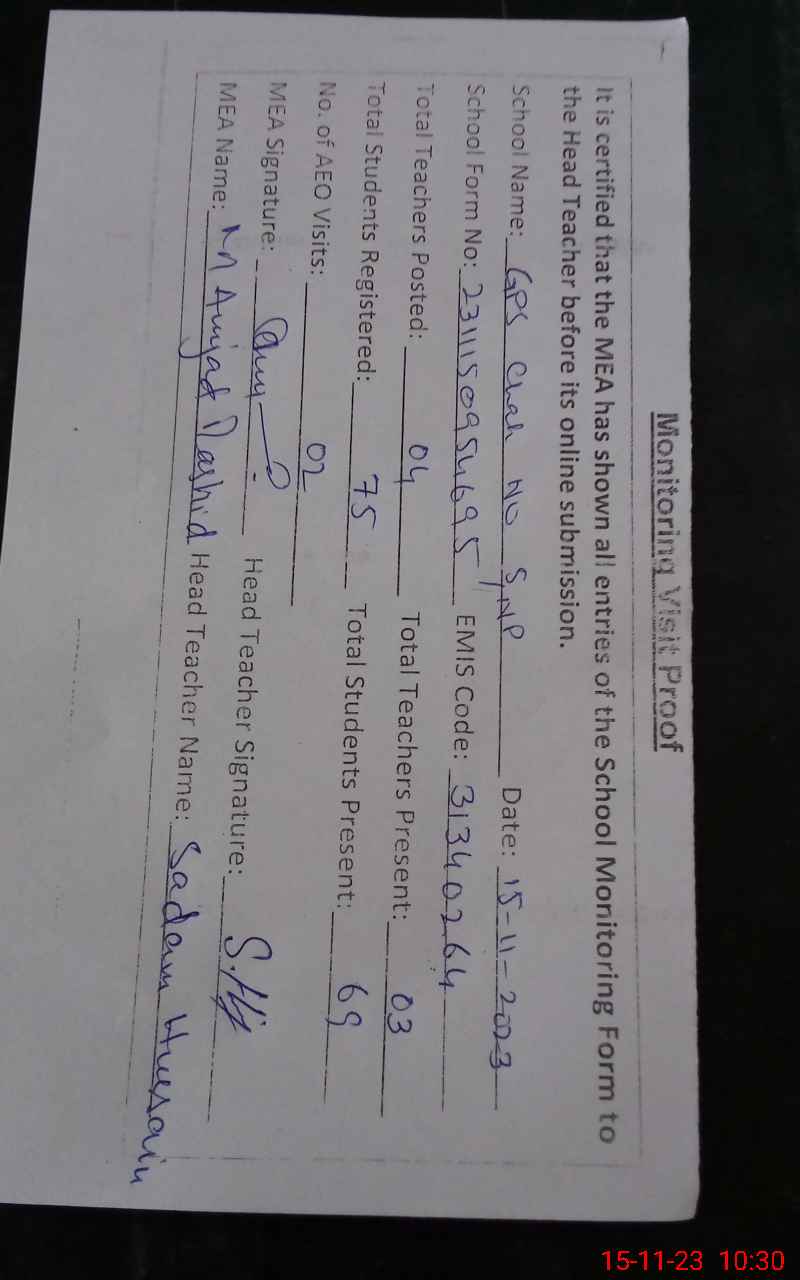 Monitoring Visit Proof
It is certified that the MEA has shown all entries of the School Monitoring Form to
the Head Teacher before its online submission.
School Name: GPS Chah No 5/NP Date: 15-11-2023
School Form No: 2311150954695 EMIS Code: 31340264
Total Teachers Posted: 04 Total Teachers Present: 03
Total Students Registered: 75 Total Students Present: 69
No. of AEO Visits: 02
MEA Signature: Head Teacher Signature:
MEA Name: Amjad Rashid Head Teacher Name: Sadam Hussain
15-11-23 10:30